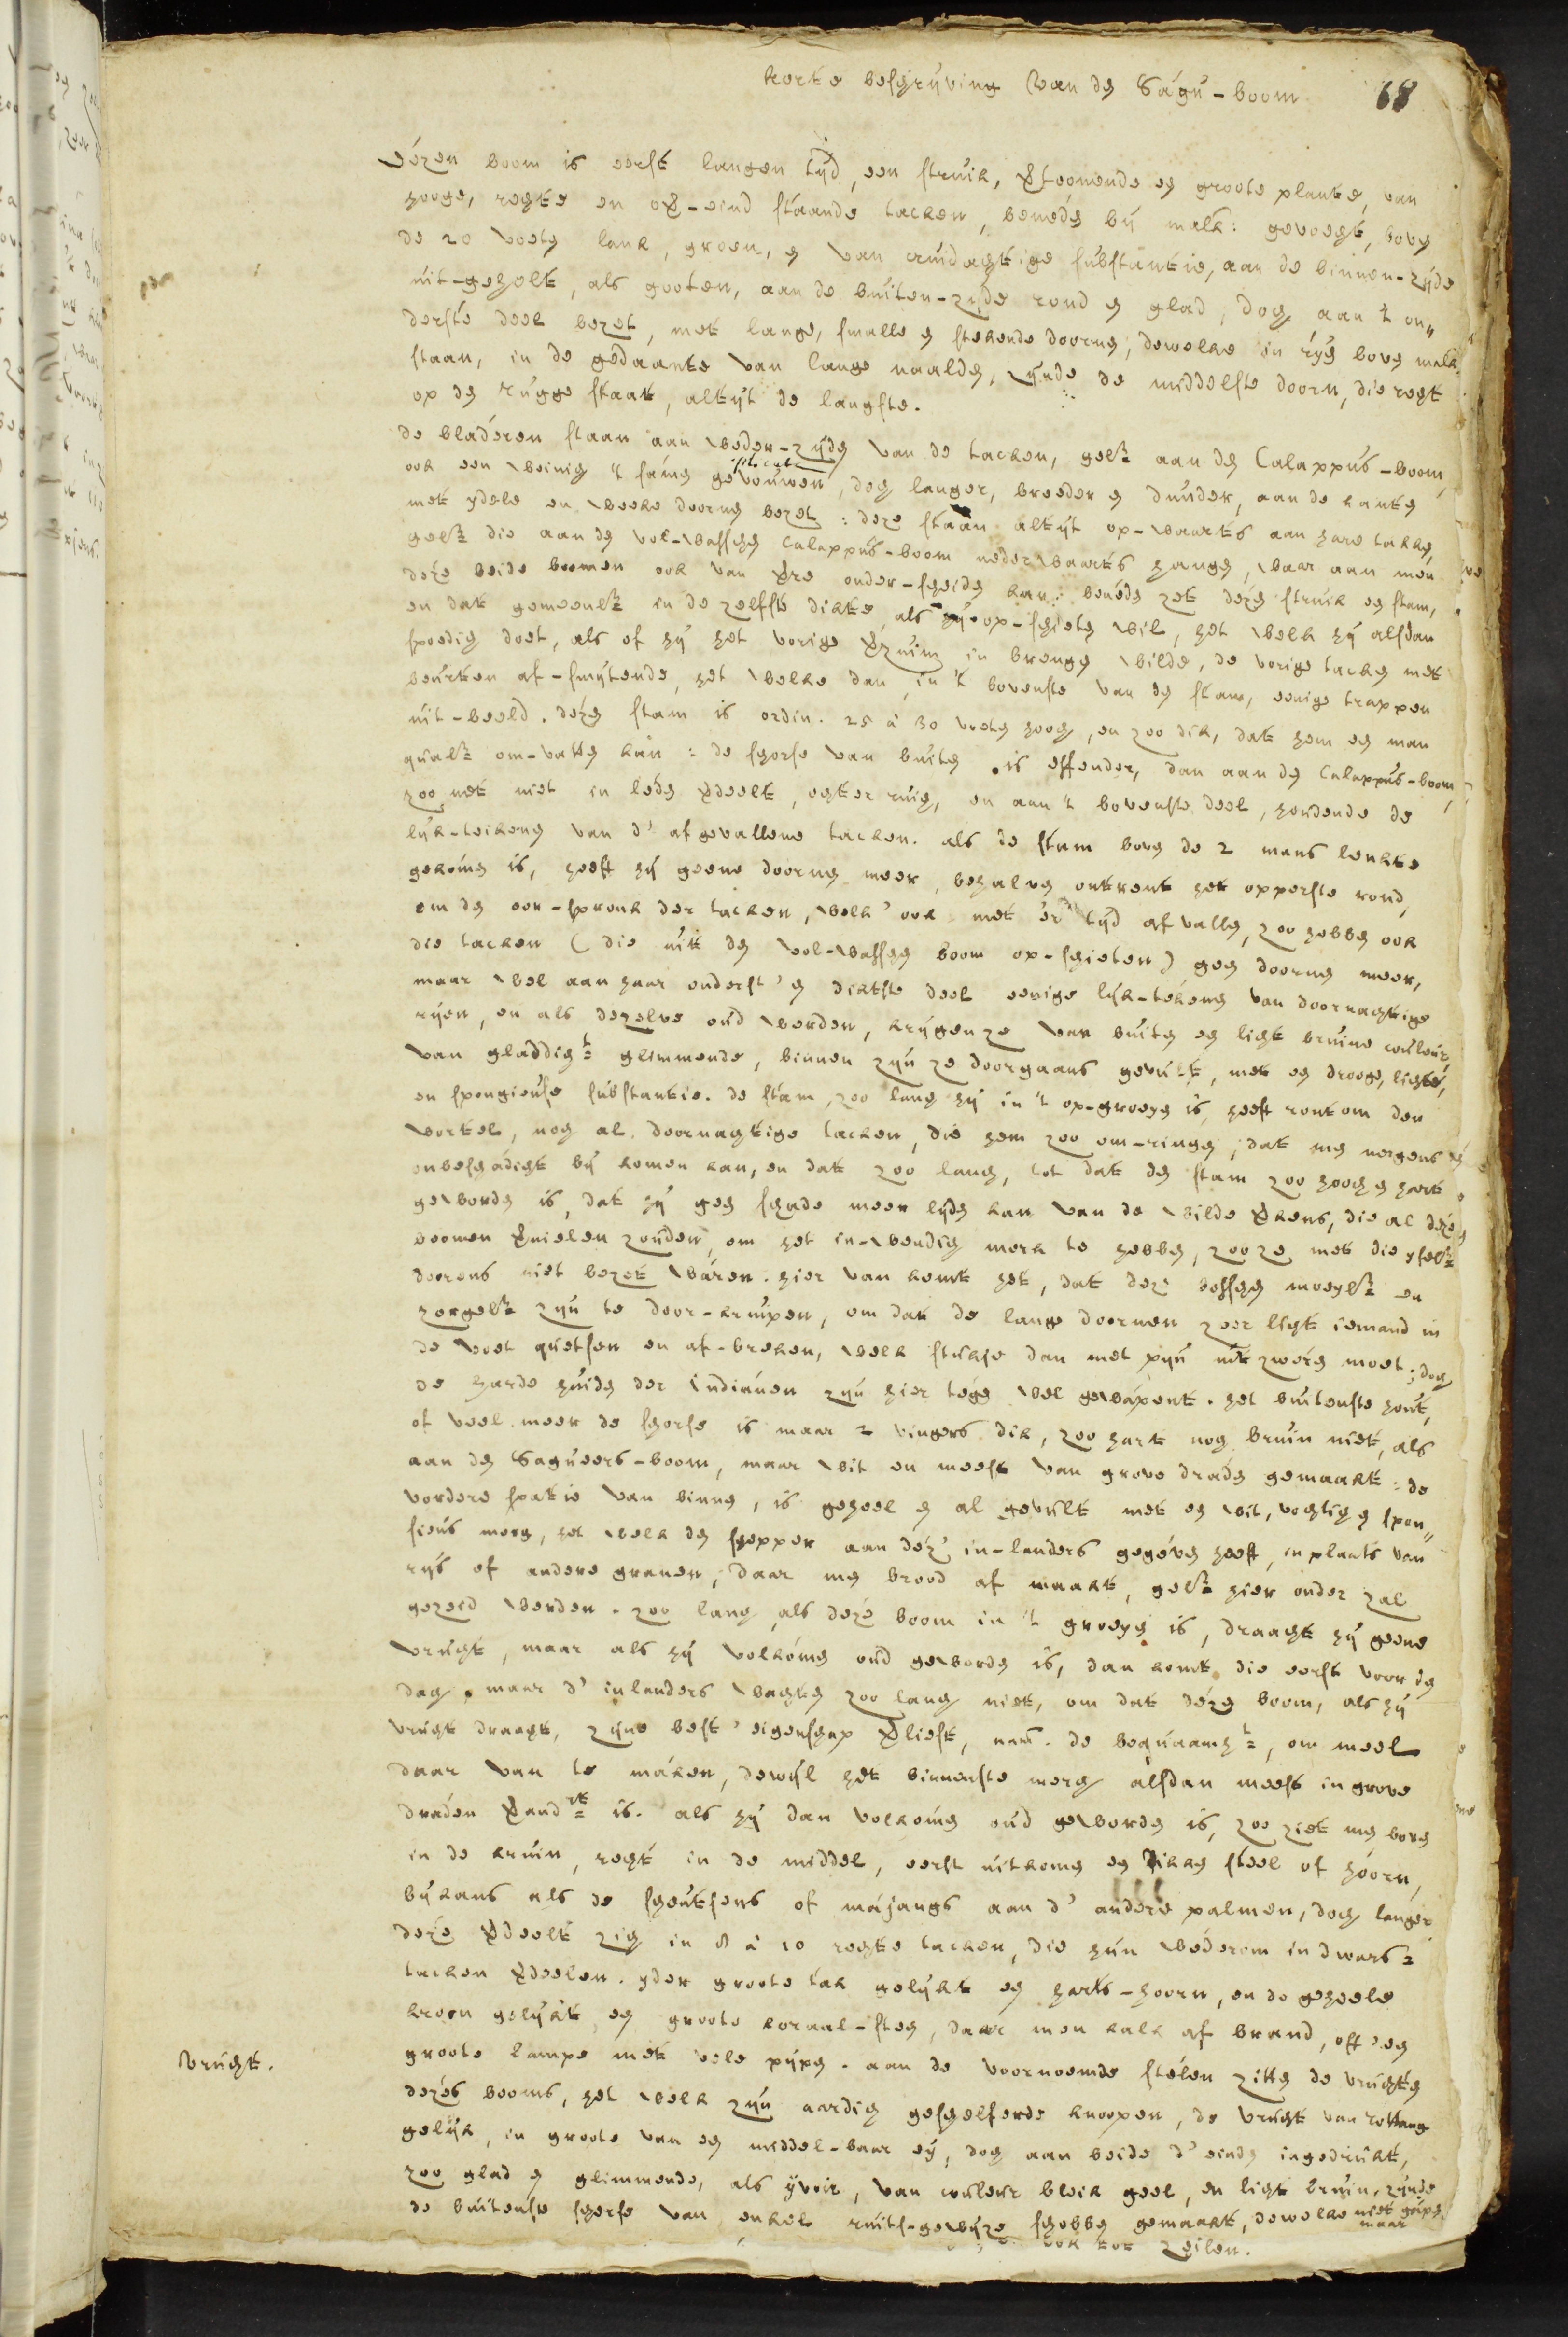 korte beschrijving van den Sagu-boom 68
dézen boom is eerst langen tijd, een struik, vertoonende en groote plante, van
hooge, rechte en over-eind staande tacken, beneden bij malk: gevoegt, boven
de 20 voeten lank, groen, en van cruidachtige substantie, aan de binnen-zijde
uit-geholt, als gooten, aan de buiten-zijde rond en glad, doch aan 't on„
derste deel bezet, met lange, smalle en stekende doornen, dewelke in rijen boven malk.
staan, in de gedaante van lange naalden, zijnde de middelste doorn, die regt
op den rugge staat, altijt de langste.
de bladeren staan aan weder-zijden van de tacken, gelk aan den Calappus-boom,
ook een weinig 't samen gevouwen, doch langer, breeder en dunder, aan de kanten
met ydele en weeke doornen bezet: deze staan altijt op-waarts aan hare takken,
gelk die aan den vol-wassen Calappus-boom nederwaarts hangen, waar aan men
deze beide boomen ook van verre onder-scheiden kan: beneden zet dezen struik en stam,
en dat gemeenlk in de zelfste dikte, als hij op-schieten wil, het welk hij alsdan
spoedig doet, als of hij het vorige verzuim in brengen wilde, de vorige tacken met
beurten af-smijtende, het welke dan, in 't bovenste van den stam, eenige trappen
uit-beeld. dezen stam is ordin. 25 à 30 voeten hoog, en zoo dik, dat hem en man
qualk om-vatten kan: de schorse van buiten is effender, dan aan den Calappus-boom,
zoo net niet in leden verdeelt, echter ruig, en aan 't bovenste deel, houdende de
lijk-teikens van d' afgevallene tacken. als de stam boven de 2 mans lenkte
gekomen is, heeft hij geene doornen meer, behalven ontrent het opperste rond,
om den oor-spronk der tacken, welk' ook met 'er tijd af vallen, zoo hebben ook
die tacken (die uit den vol-wassen boom op-schieten) geen doornen meer,
maar wel aan haar onderst' en dikste deel eenige lijk-tekens van doornachtige
rijen, en als dezelve oud werden, krijgen ze van buiten en licht bruine couleur,
van gladdigh. glimmende, binnen zijn ze doorgaans gevult, met en drooge, lichte,
en spongieuse substantie. de stam, zoo lang hij in 't op-groeyen is, heeft rontom den
wortel, nog al doornachtige tacken, die hem zoo om-ringen, dat men nergens
onbeschadigt bij komen kan, en dat zoo lang, tot dat den stam zoo hoog en hart
geworden is, dat hij geen schade meer lijden kan van de wilde verkens, die al deze
boomen vernielen zouden, om het in-wendig merk te hebben, zoo ze met die ysselk
doorens niet bezet waren. hier van komt het, dat deze bosschen moeylk en
zorgelk zijn te door-kruipen, om dat de lange doornen zeer licht iemand in
de voet quetsen en af-breken, welk stukse dan met pijn uit zweren moet; doch
de harde huiden der Indianen zijn hier tegen wel gewapent. het buitenste hout,
of veel meer de schorse is maar 2 vingers dik, zoo hart nog bruin niet, als
aan den Sagueers-boom, maar wit en meest van grove draden gemaakt: de
vordere spatie van binnen, is geheel en al gevult met en wit, vochtig en spon„
sieus merg, het welk den schepper aan dez' in-landers gegeven heeft, in plaats van
rijs of andere granen, daar men brood af maakt, gelk hier onder zal
gezeid werden. zoo lang, als deze boom in 't groeyen is, draagt hij geene
vrucht, maar als hij volkomen oud geworden is, dan komt die eerst voor den
dag, maar d' inlanders wachten zoo lang niet, om dat dezen boom, als hij
vrucht draagt, zijne best' eigenschap verliest, nam. de bequaamh., om meel
daar van te maken, dewijl het binnenste merg alsdan meest in grove
draden verand.rt is. als hij dan volkomen oud geworden is, zoo ziet men boven
in de kruin, recht in de middel, eerst uitkomen en dikken steel of hoorn,
bijkans als de scheutsens of majangs aan d' andere palmen, doch langer
deze verdeelt zig in 8 à 10 rechte tacken, die hun wederom in dwars-
tacken verdeelen. yder groote tak gelijkt en harts-hoorn, en de geheele
kroon gelijkt en groote koraal-steen, daar men kalk af brand, oft' en
groote lampe met vele pijpen. aan de voornoemde stelen zitten de vruchten
Vrucht.
dezes booms, het welk zijn aardig geschelferde knoopen, de vrucht van rottang
gelijk, in groote van en middel-baar ey, doch aan beide d' einden ingedrukt,
zoo glad en glimmende, als yvoir, van couleur bleik geel, en licht bruin, zijnde
de buitenste schorse van enkel ruits-gewijze schobben gemaakt, dewelke niet gapen
maar
ook tot zeilen.